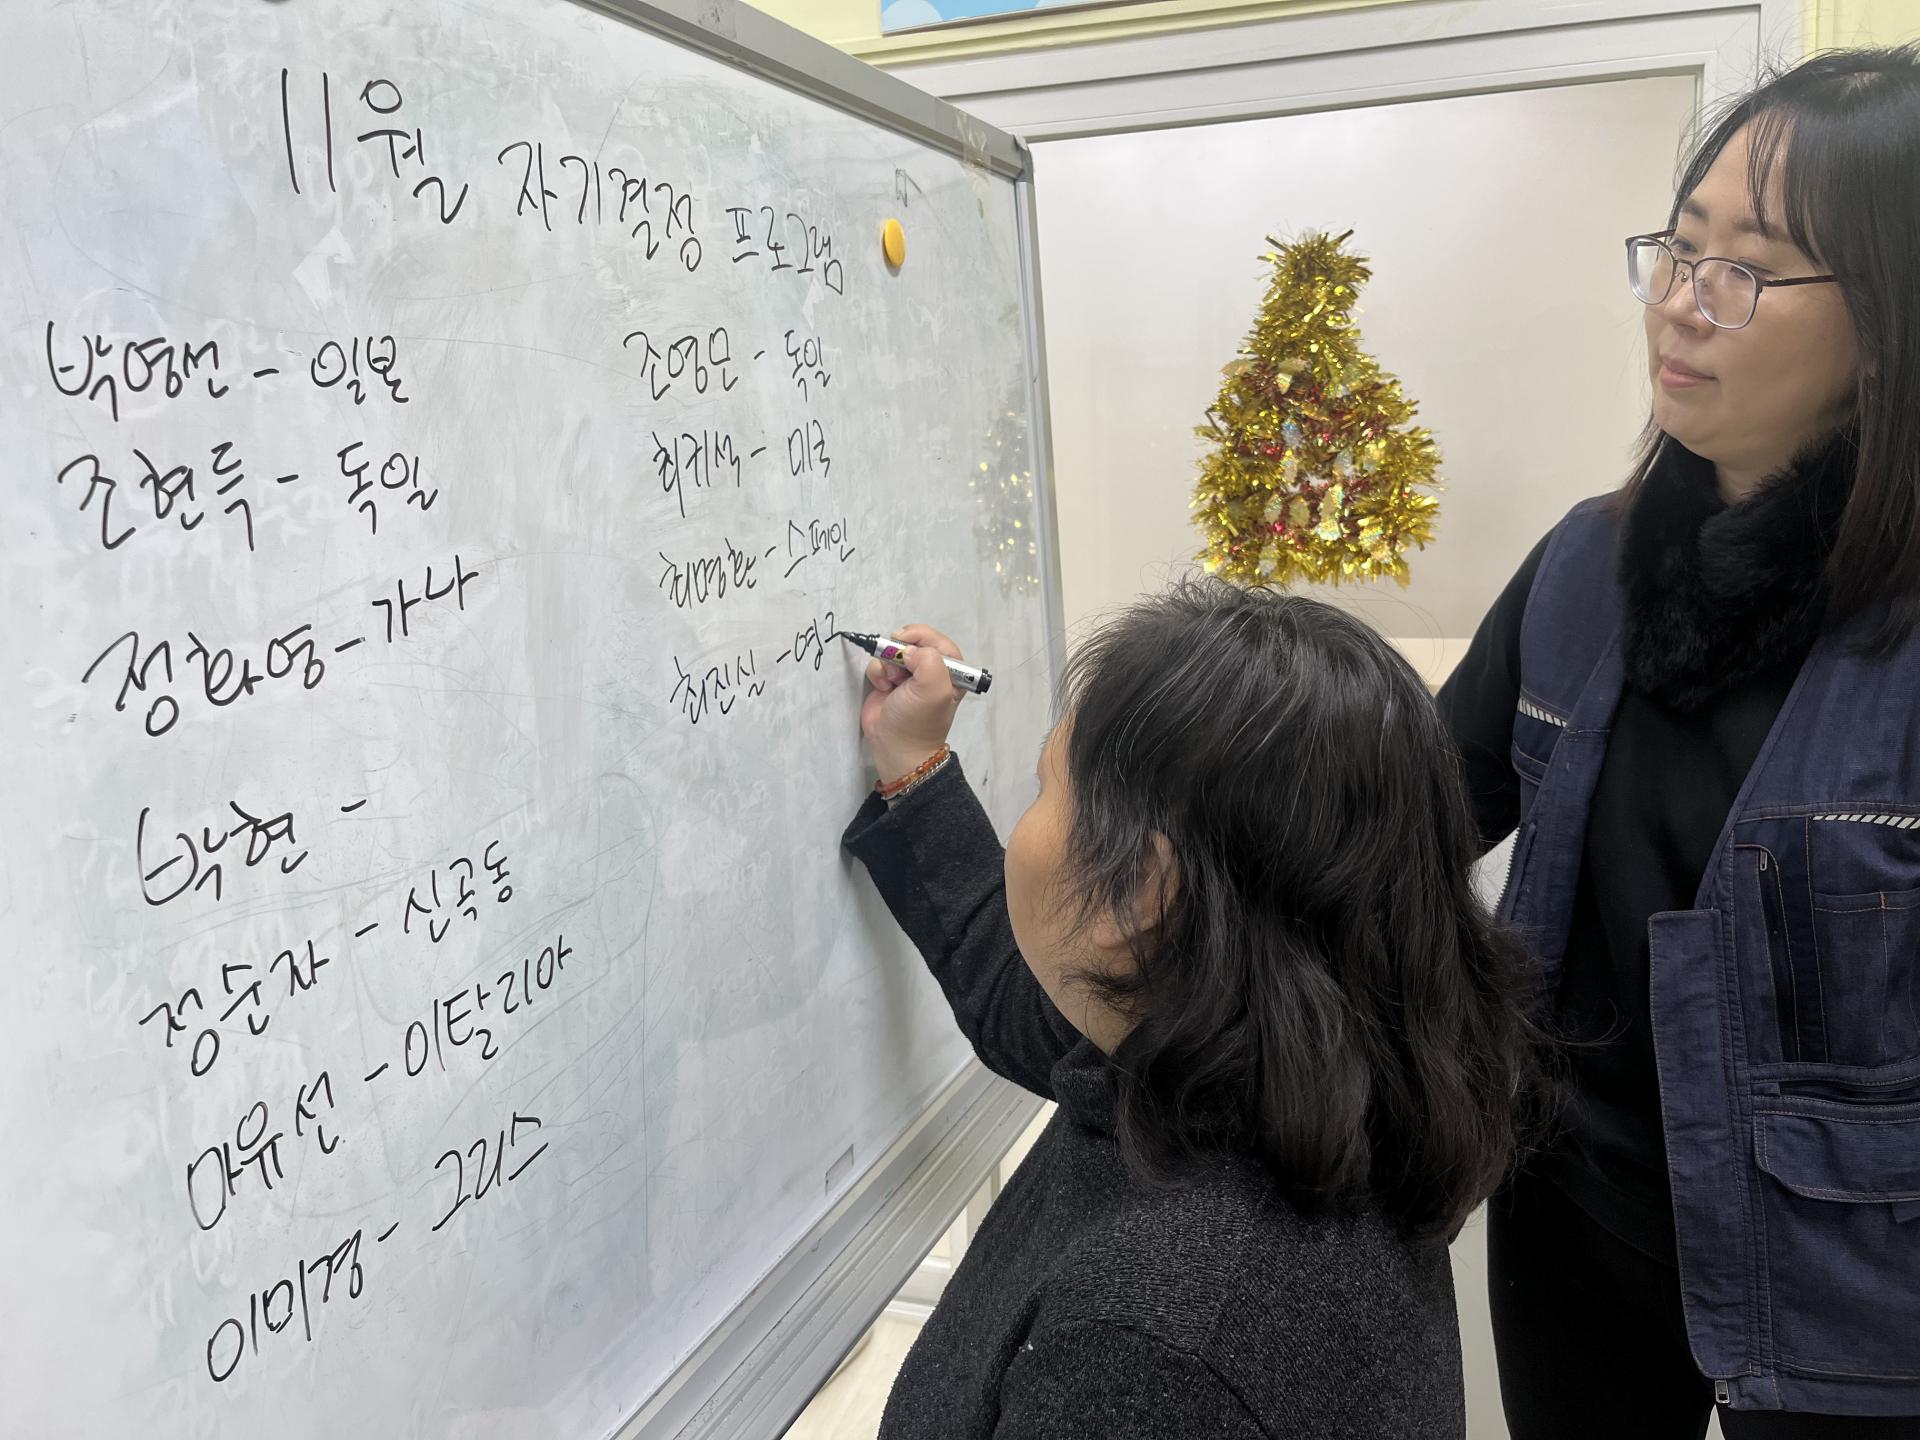 11월 자기결정 프로그램
박영선 - 일본
조현득 - 독일
정화영 - 가나
박현 -
정순자 - 신곡동
마유선 - 이탈리아
이미경 - 그리스
조영문 - 독일
최귀석 - 미국
최명환 - 스페인
최진실 - 영그